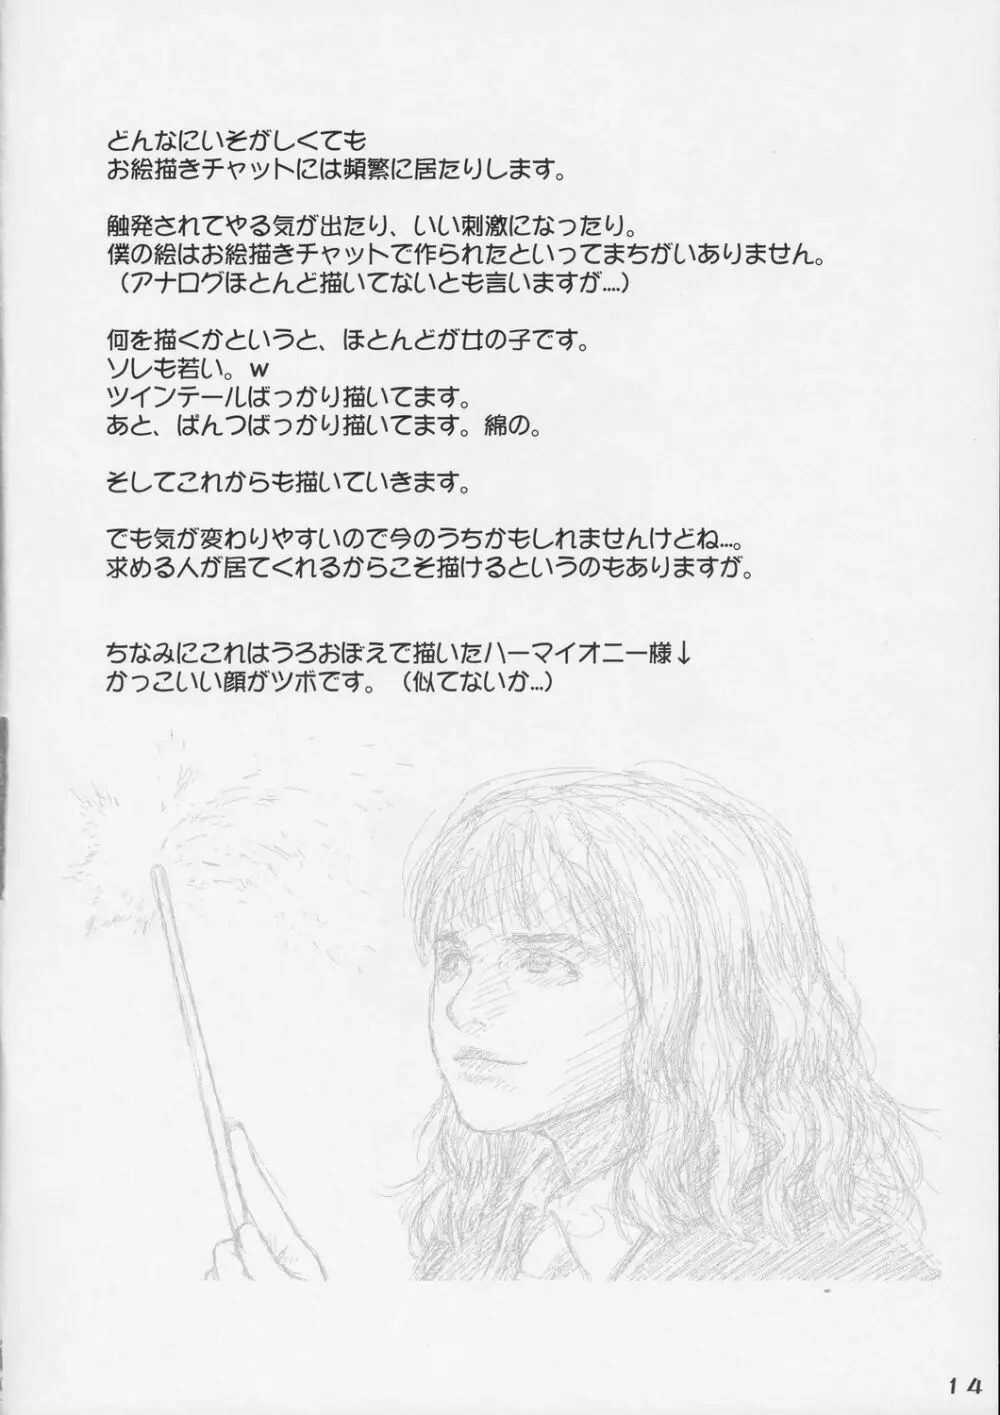 どんなにいそがしくても
お絵描きチャットには頻繁に居たりします。
触発されてやる気が出たり、いい刺激になったり。
僕の絵はお絵描きチャットで作られたといってまちがいありません。
（アナログほとんど描いてないとも言いますが....）
何を描くかというと、ほとんどが女の子です。
ソレも若い。ｗ
ツインテールばっかり描いてます。
あと、ぱんつばっかり描いてます。綿の。
そしてこれからも描いていきます。
でも気が変わりやすいので今のうちかもしれませんけどね...。
求める人が居てくれるからこそ描けるというのもありますが。
ちなみにこれはうろおぼえで描いたハーマイオニー様↓
かっこいい顔がツボです。（似てないか...）
14